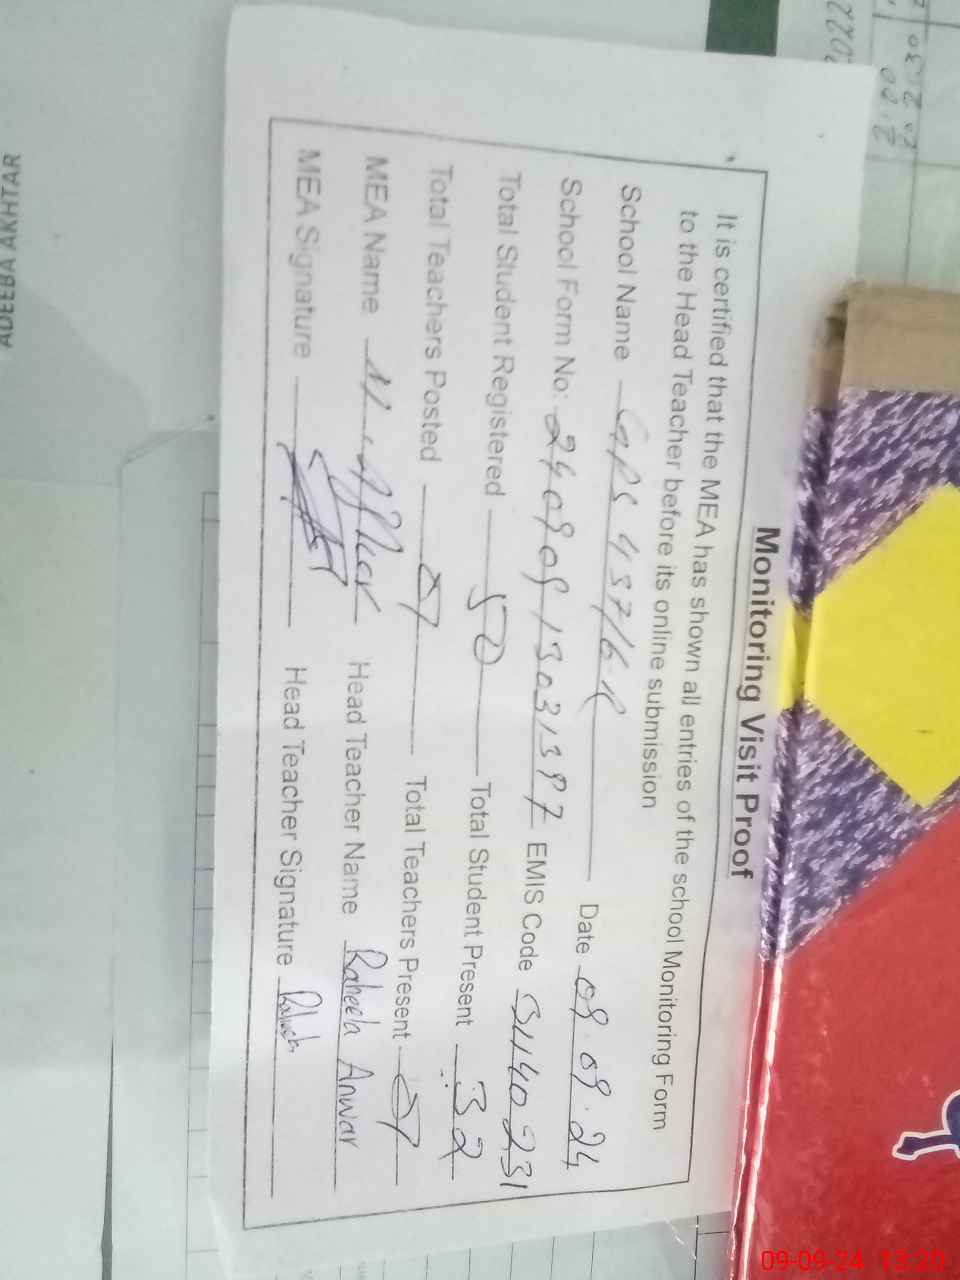 Monitoring Visit Proof
It is certified that the MEA has shown all entries of the school Monitoring Form
to the Head Teacher before its online submission
School Name GPS 437/6-R Date 09.09.24
School Form No: 24090913031397 EMIS Code 31140231
Total Student Registered 50 Total Student Present 32
Total Teachers Posted 01 Total Teachers Present 01
MEA Name Head Teacher Name Raheela Anwar
MEA Signature Head Teacher Signature
ADEEBA AKHTAR
09-09-24 13:20